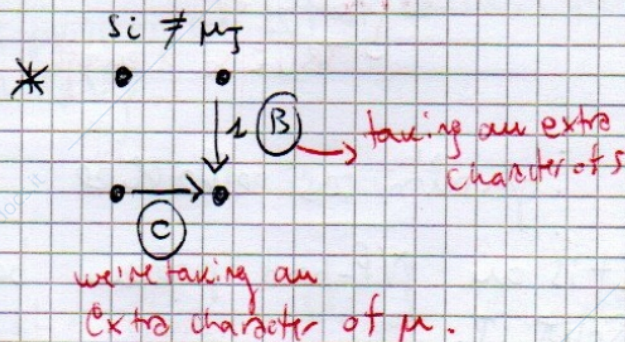 * si ≠ μj
1 B → taking an extra
character of s
C
we're taking an
extra character of μ.